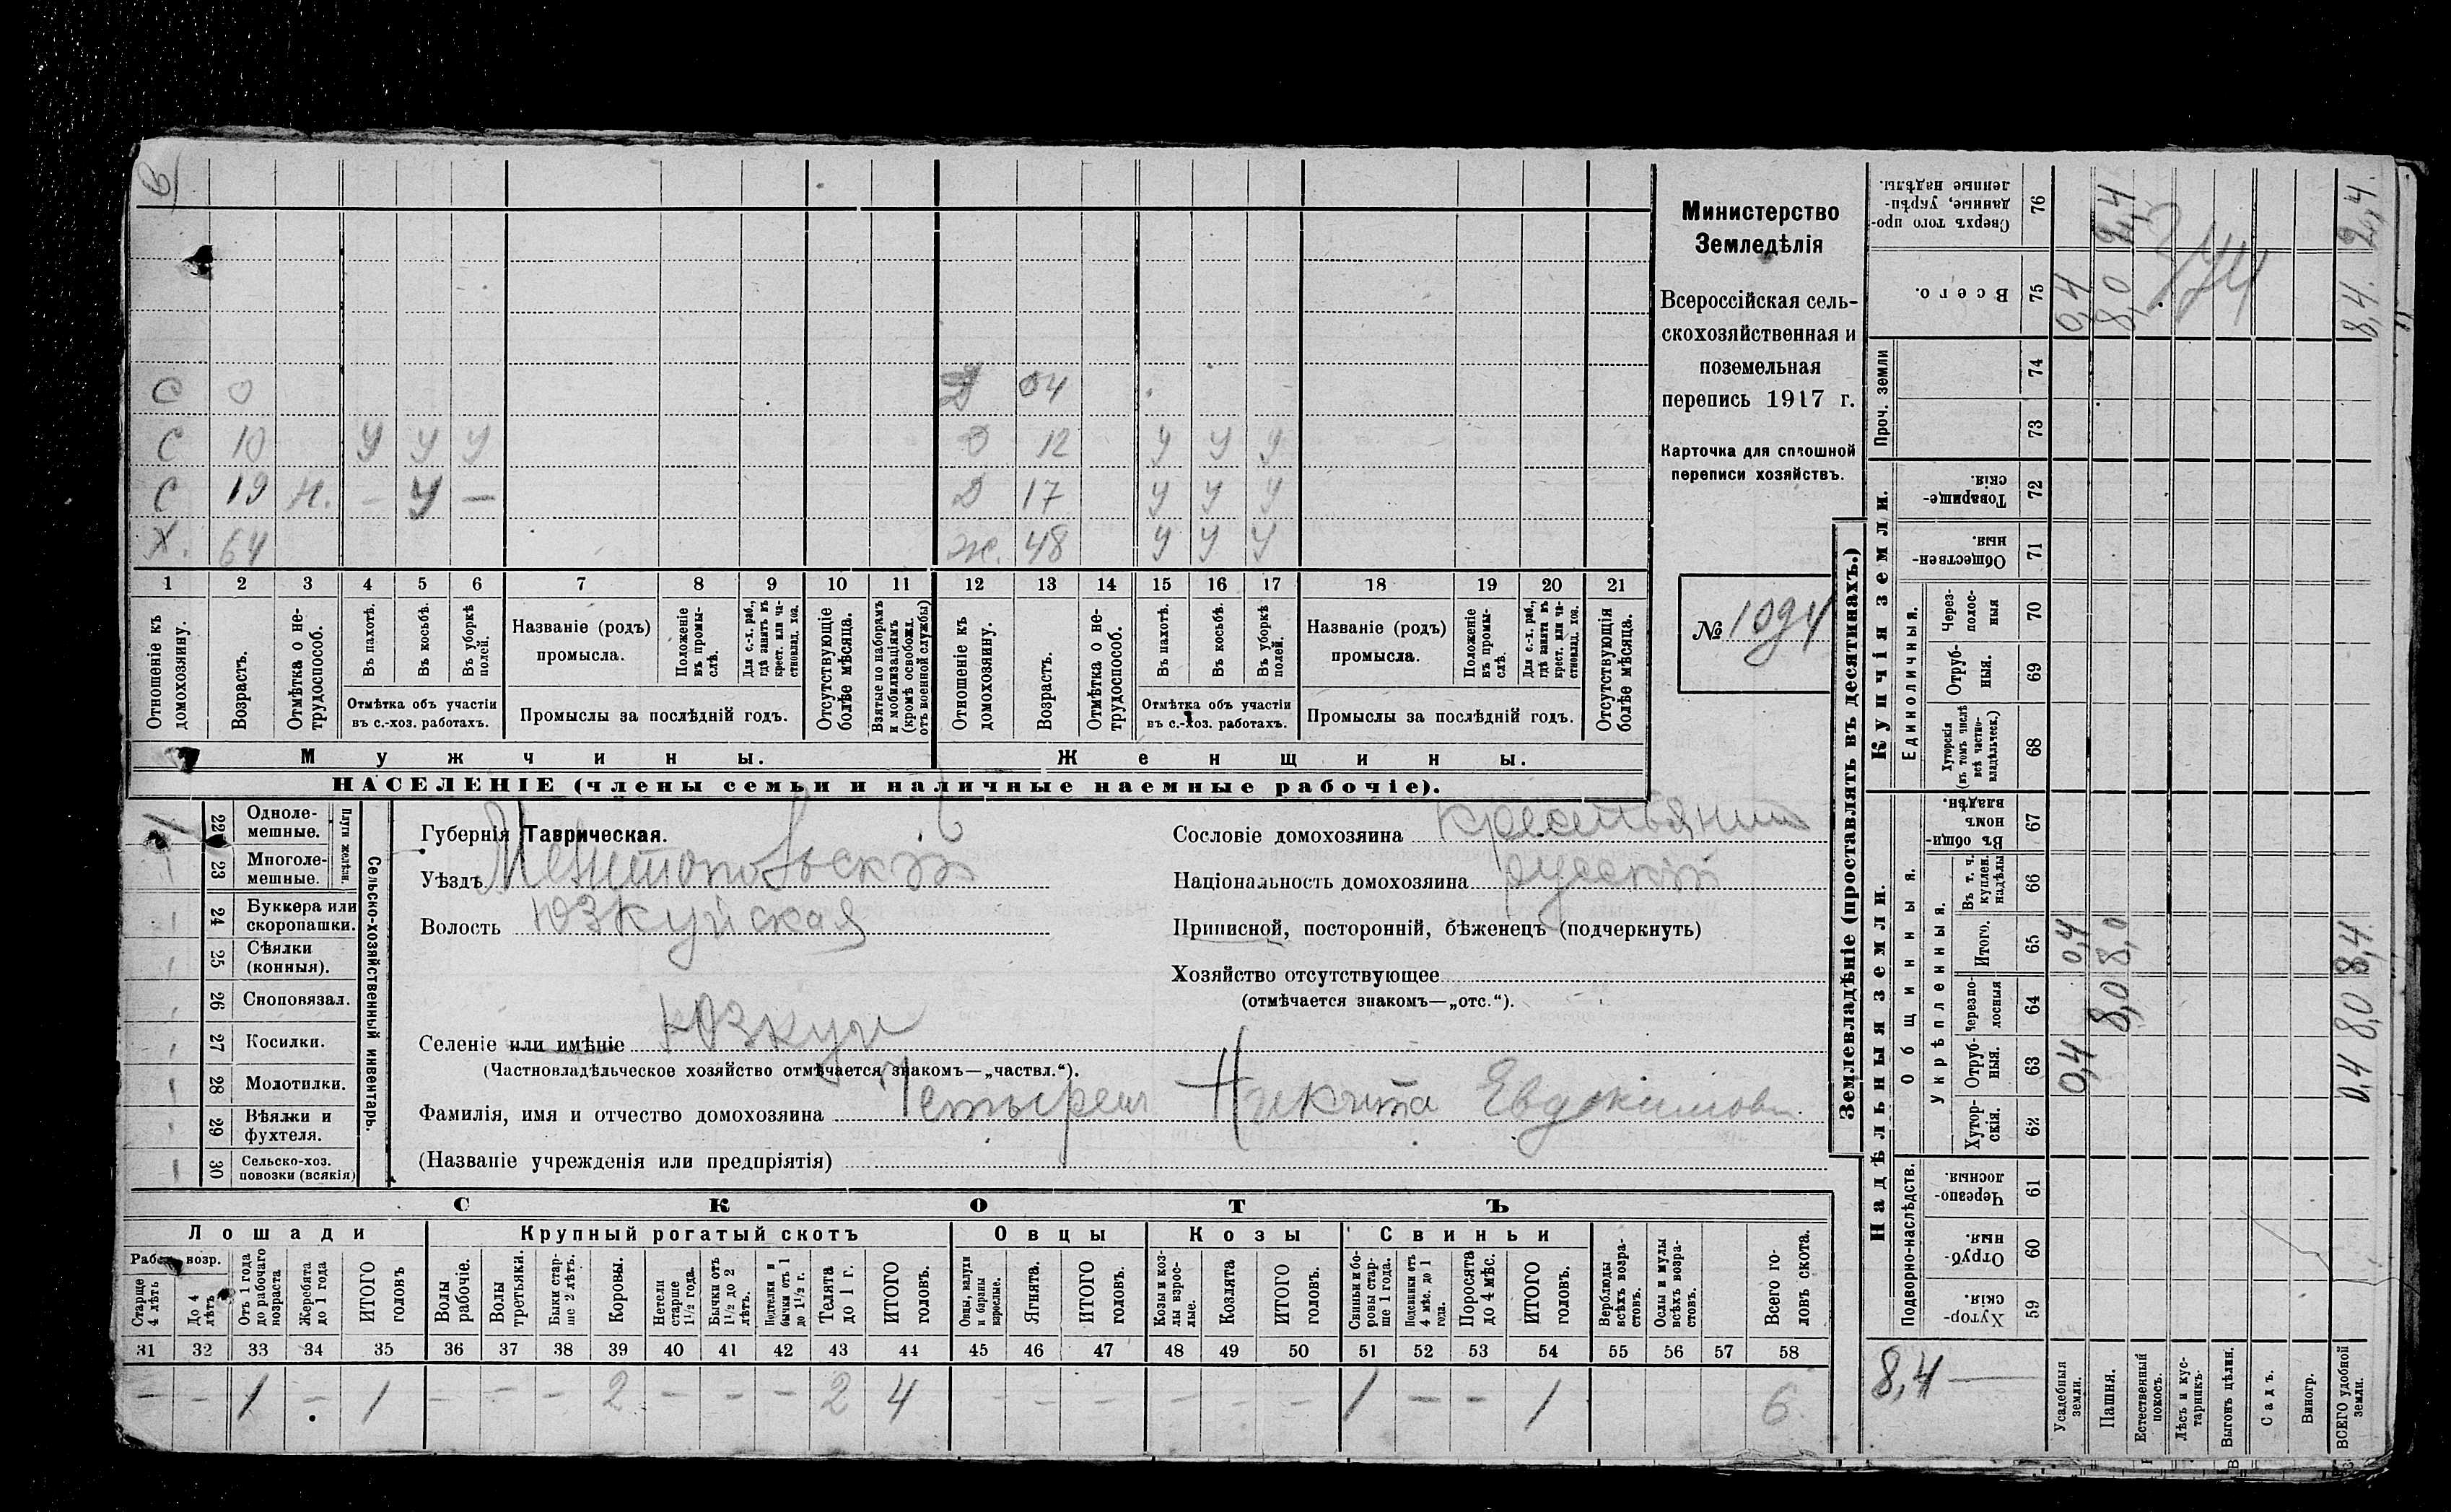 С 0 Д 04
С 10 У У У Д 12 У У У
С 19 н. – У – Д 17 У У У
Х. 64 Ж. 48 У У У
1 2 3 4 5 6 7 8 9 10 11 12 13 14 15 16 17 18 19 20 21
Отношеніе къ домохозяину.
Возрастъ.
Отмѣтка о нетрудоспособ.
Въ пахотѣ.
Въ косьбѣ.
Въ уборкѣ полей.
Отмѣтка объ участіи
въ с.-хоз. работахъ.
Названіе (родъ)
промысла.
Положеніе въ промыслѣ.
Для с.-х. раб., гдѣ занятъ въ крест. или частновлад. хоз.
Промыслы за послѣдній годъ.
Отсутствующіе болѣе мѣсяца.
Взятые по наборамъ и мобилизаціямъ (кромѣ освобожд. отъ военной службы)
Отношеніе къ домохозяину.
Возрастъ.
Отмѣтка о нетрудоспособ.
Въ пахотѣ.
Въ косьбѣ.
Въ уборкѣ полей.
Отмѣтка объ участіи
въ с.-хоз. работахъ.
Названіе (родъ)
промысла.
Положеніе въ промыслѣ.
Для с.-х. раб., гдѣ занята въ крест. или частновлад. хоз.
Промыслы за послѣдній годъ.
Отсутствующія болѣе мѣсяца.
Мужчины. Женщины.
НАСЕЛЕНІЕ (члены семьи и наличные наемные рабочіе).
Министерство
Земледѣлія
Всероссійская сель-
скохозяйственная и
поземельная
перепись 1917 г.
Карточка для сплошной
переписи хозяйствъ.
№ 1094
22 Одноле-
мешные.
23 Многоле-
мешные.
Плуги желѣзн.
24 Буккера или
скоропашки.
25 Сѣялки
(конныя).
26 Сноповязал.
27 Косилки.
28 Молотилки.
29 Вѣялки и
фухтеля.
30 Сельско-хоз.
повозки (всякія)
Сельско-хозяйственный инвентарь.
Губернія Таврическая.
Уѣздъ Мелитопольскій
Волость Юзкуйская
Селеніе или имѣніе Юзкуи
(Частновладѣльческое хозяйство отмѣчается знакомъ—„частвл.“).
Фамилія, имя и отчество домохозяина Никита Евдокимовъ
(Названіе учрежденія или предпріятія)
Сословіе домохозяина крестьянин
Національность домохозяина русскій
Приписной, посторонній, бѣженецъ (подчеркнуть)
Хозяйство отсутствующее
(отмѣчается знакомъ—„отс.“).
СКОТЪ
Лошади Крупный рогатый скотъ Овцы Козы Свиньи
Рабоч. возр.
Старше 4 лѣтъ
До 4 лѣтъ
Отъ 1 года до рабочаго возраста
Жеребята до 1 года
ИТОГО головъ
Волы рабочіе.
Волы третьяки.
Быки старше 2 лѣтъ.
Коровы.
Нетели старше 1½ года.
Бычки отъ 1½ до 2 лѣтъ.
Подтелки и бычки отъ 1 до 1½ г.
Телята до 1 г.
ИТОГО головъ.
Овцы, валухи и бараны взрослые.
Ягнята.
ИТОГО головъ.
Козы и козлы взрослые.
Козлята
ИТОГО головъ.
Свиньи и боровы старше 1 года.
Подсвинки отъ 4 мѣс. до 1 года.
Поросята до 4 мѣс.
ИТОГО головъ.
Верблюды всѣхъ возрастовъ.
Ослы и мулы всѣхъ возрастовъ.
Всего головъ скота.
31 32 33 34 35 36 37 38 39 40 41 42 43 44 45 46 47 48 49 50 51 52 53 54 55 56 57 58
– – 1 – 1 – – – 2 – – – 2 4 – – – – – – 1 – – 1 6
Землевладѣніе (проставлять въ десятинахъ.)
Купчія земли.
Надѣльныя земли.
Сверхъ того проданные, укрѣпленные надѣлы. 76
Всего. 75
Проч. земли 74 73
Товарищескія. 72
Общественныя. 71
Единоличныя.
Черезполосныя 70
Отрубныя. 69
Хуторскія (въ томъ числѣ всѣ частновладѣльческ.) 68
Общинныя.
Въ общинномъ владѣн. 67
Укрѣпленныя.
Въ т. ч. куплен. надѣлы 66
Итого. 65
Черезполосныя 64
Отрубныя. 63
Хуторскія. 62
Подворно-наслѣдств.
Черезполосныя 61
Отрубныя. 60
Хуторскія. 59
8,4 —
Усадебныя земли. 0,4 0,4 0,4
Пашня. 8,0 8,0 8,0 2,4
Естественный покосъ.
Лѣсъ и кустарникъ.
Выгонъ цѣлин.
Садъ.
Виногр.
ВСЕГО удобной земли. 0,4 8,0 8,4 8,4 2,4